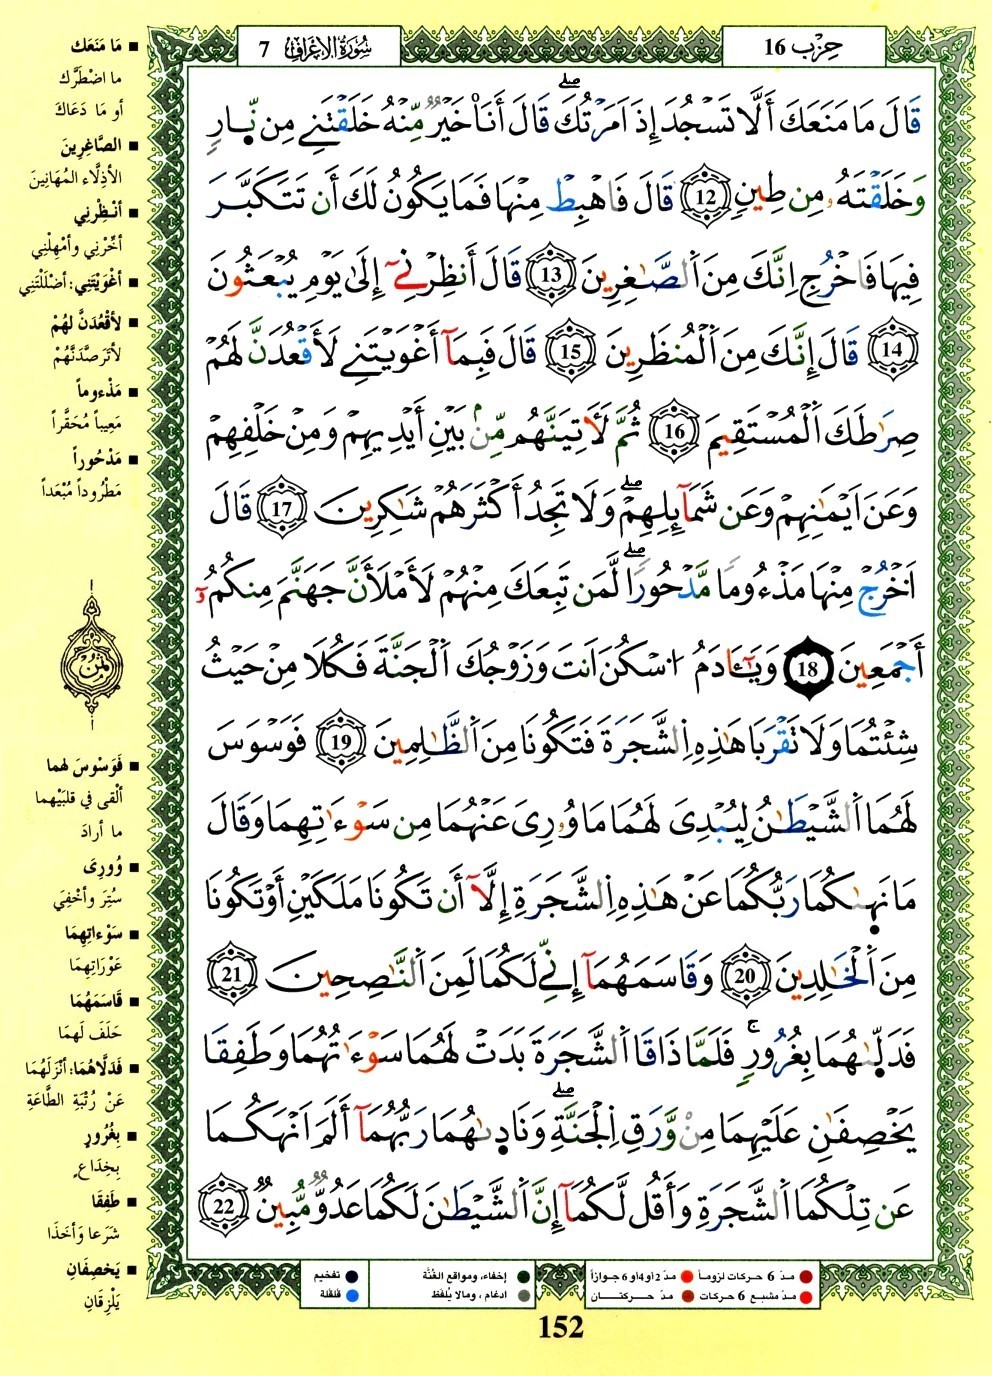 حِزْب 16
سُورَةُ الْأَعْرَافِ 7
قَالَ مَا مَنَعَكَ أَلَّا تَسْجُدَ إِذَ اَمَرْتُكَ قَالَ أَنَا۠ خَيْرٌ مِّنْهُ خَلَقْتَنِے مِن نّ۪ارٖ
وَخَلَقْتَهُۥ مِن طِينٖ 12 قَالَ فَاهْبِطْ مِنْهَا فَمَا يَكُونُ لَكَ أَن تَتَكَبَّرَ
فِيهَا فَاخْرُجِ اِنَّكَ مِنَ اَ۬لصَّٰغِرِينَ 13 قَالَ أَنظِرْنِےٓ إِلَىٰ يَوْمِ يُبْعَثُونَ
14 قَالَ إِنَّكَ مِنَ اَ۬لْمُنظَرِينَ 15 قَالَ فَبِمَآ أَغْوَيْتَنِے لَأَقْعُدَنَّ لَهُمْ
صِرَٰطَكَ اَ۬لْمُسْتَقِيمَ 16 ثُمَّ لَأٓتِيَنَّهُم مِّنۢ بَيْنِ أَيْدِيهِمْ وَمِنْ خَلْفِهِمْ
وَعَنَ اَيْمَٰنِهِمْ وَعَن شَمَآئِلِهِمْ وَلَا تَجِدُ أَكْثَرَهُمْ شَٰكِرِينَ 17 قَالَ
اَ۟خْرُجْ مِنْهَا مَذْءُوماٗ مَّدْحُوراٗ لَّمَن تَبِعَكَ مِنْهُمْ لَأَمْلَأَنَّ جَهَنَّمَ مِنكُمُۥٓ
أَجْمَعِينَ 18 وَيَٰٓـَٔادَمُ اُ۟سْكُنَ اَنتَ وَزَوْجُكَ اَ۬لْجَنَّةَ فَكُلَا مِنْ حَيْثُ
شِئْتُمَا وَلَا تَقْرَبَا هَٰذِهِ اِ۬لشَّجَرَةَ فَتَكُونَا مِنَ اَ۬لظَّٰلِمِينَ 19 فَوَسْوَسَ
لَهُمَا اَ۬لشَّيْطَٰنُ لِيُبْدِيَ لَهُمَا مَا وُۥرِيَ عَنْهُمَا مِن سَوْءَٰتِهِمَا وَقَالَ
مَا نَه۪ىٰكُمَا رَبُّكُمَا عَنْ هَٰذِهِ اِ۬لشَّجَرَةِ إِلَّآ أَن تَكُونَا مَلَكَيْنِ أَوْ تَكُونَا
مِنَ اَ۬لْخَٰلِدِينَ 20 وَقَاسَمَهُمَآ إِنِّے لَكُمَا لَمِنَ اَ۬لنَّٰصِحِينَ 21
فَدَلّ۪ىٰهُمَا بِغُرُورٖ فَلَمَّا ذَاقَا اَ۬لشَّجَرَةَ بَدَتْ لَهُمَا سَوْءَٰتُهُمَا وَطَفِقَا
يَخْصِفَٰنِ عَلَيْهِمَا مِنْ وَّرَقِ اِ۬لْجَنَّةِ وَنَاد۪ىٰهُمَا رَبُّهُمَآ أَلَمَ اَنْهَكُمَا
عَن تِلْكُمَا اَ۬لشَّجَرَةِ وَأَقُل لَّكُمَآ إِنَّ اَ۬لشَّيْطَٰنَ لَكُمَا عَدُوّٞ مُّبِينٞ 22
■ مَا مَنَعَكَ
ما اضْطَرَّكَ
أو مَا دَعَاكَ
■ الصَّاغِرِينَ
الأذِلَّاءِ المُهَانِينَ
■ أَنظِرْنِي
أخِّرْنِي وأمْهِلْنِي
■ أَغْوَيْتَنِي: أضْلَلْتَنِي
■ لَأَقْعُدَنَّ لَهُمْ
لأَتَرَصَّدَنَّهُمْ
■ مَذْءُوماً
مَعِيباً مُحَقَّراً
■ مَدْحُوراً
مَطْرُوداً مُبْعَداً
ثُمُن
■ فَوَسْوَسَ لهما
ألْقى في قلبَيْهِما
ما أرادَ
■ وُورِيَ
سُتِرَ وأخْفِيَ
■ سَوْءَاتِهِمَا
عَوْرَاتِهِمَا
■ قَاسَمَهُمَا
حَلَفَ لَهِمَا
■ فَدَلَّاهُمَا: أنْزَلَهُمَا
عَنْ رُتْبَةِ الطَّاعَةِ
■ بِغُرُورٍ
بِخِدَاعٍ
■ طَفِقَا
شَرَعا وَأخَذَا
■ يَخصِفَانِ
يَلْزِقَانِ
مدّ 6 حركات لزوماً ● مدّ 2 أو 4 أو 6 جوازاً ● إخفاء، ومواقع الغُنَّة ● تفخيم
مدّ مشبع 6 حركات ● مدّ حركتان ● ادغام ، ومالا يُلفَظ ● قلقلة
152